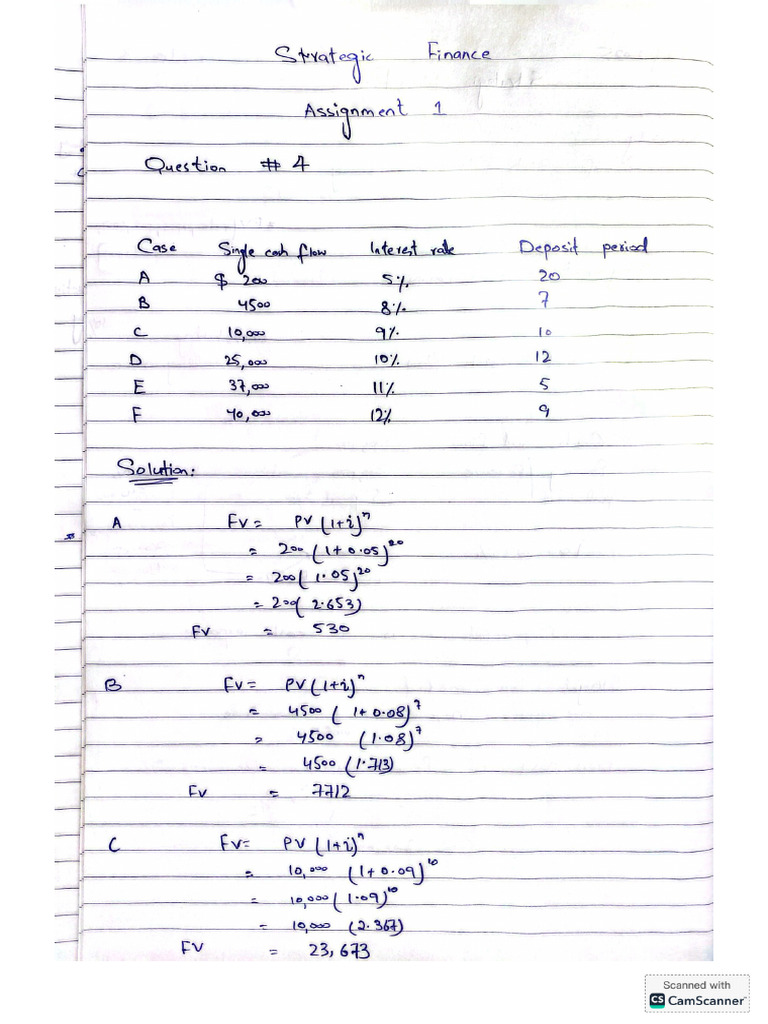 Strategic Finance
Assignment 1
Question # 4
Case Single cash flow Interest rate Deposit period
A $ 200 5% 20
B 4500 8% 7
C 10,000 9% 10
D 25,000 10% 12
E 37,000 11% 5
F 40,000 12% 9
Solution:
A FV = PV (1+i)^n
= 200 (1+0.05)^20
= 200 (1.05)^20
= 200 (2.653)
FV = 530
B FV = PV (1+i)^n
= 4500 (1+0.08)^7
= 4500 (1.08)^7
= 4500 (1.713)
FV = 7712
C FV = PV (1+i)^n
= 10,000 (1+0.09)^10
= 10,000 (1.09)^10
= 10,000 (2.367)
FV = 23,673
Scanned with
CS CamScanner